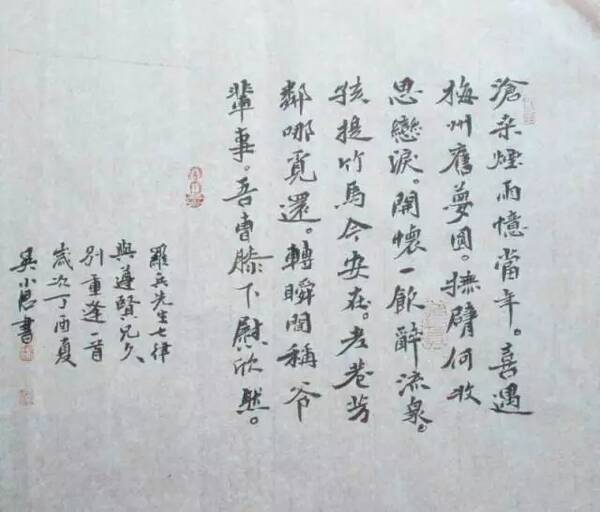 滄桑煙雨憶當年。喜遇
梅州舊夢圓。臂何收
思戀淚。開懷一飲醉流泉。
孩提竹馬今安在。老巷芳
鄰哪覓還。轉瞬間稱爷
輩事。吾曹膝下慰欣然。
羅兵先生七律
與遵賢兄久
別重逢一首
歲次丁酉夏
吴小恩書